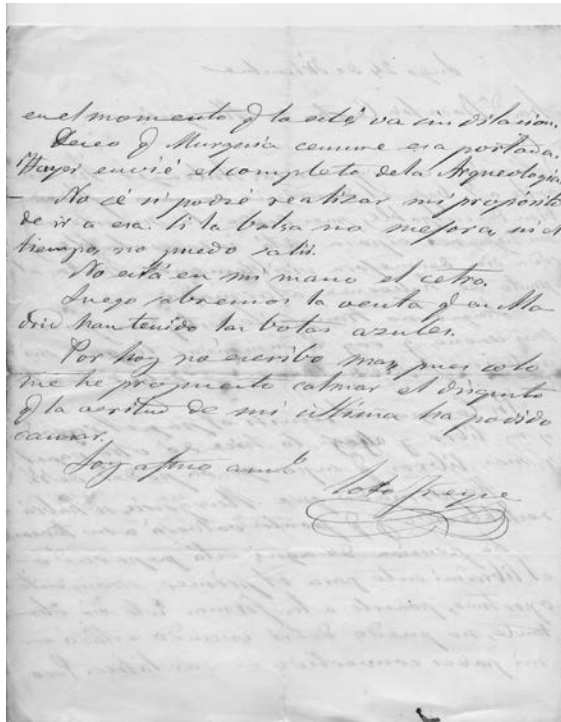 en el momento q la esté, va sin dilacion.
Deseo q Murguia censure esa portada.
Hayer envié el completo de la Arqueologia.
– No sé si podré realizar mi propósito
de ir a esa. Si la bolsa no mejora, ni el
tiempo, no puedo salir.
No está en mi mano el cetro.
Luego sabremos la venta q en Ma
drid han tenido las botas azules.
Por hoy no escribo mas, pues solo
me he propuesto calmar el disgusto
q la acritud de mi ultima ha podido
causar.
Soy afmo amº
Soto Freyre